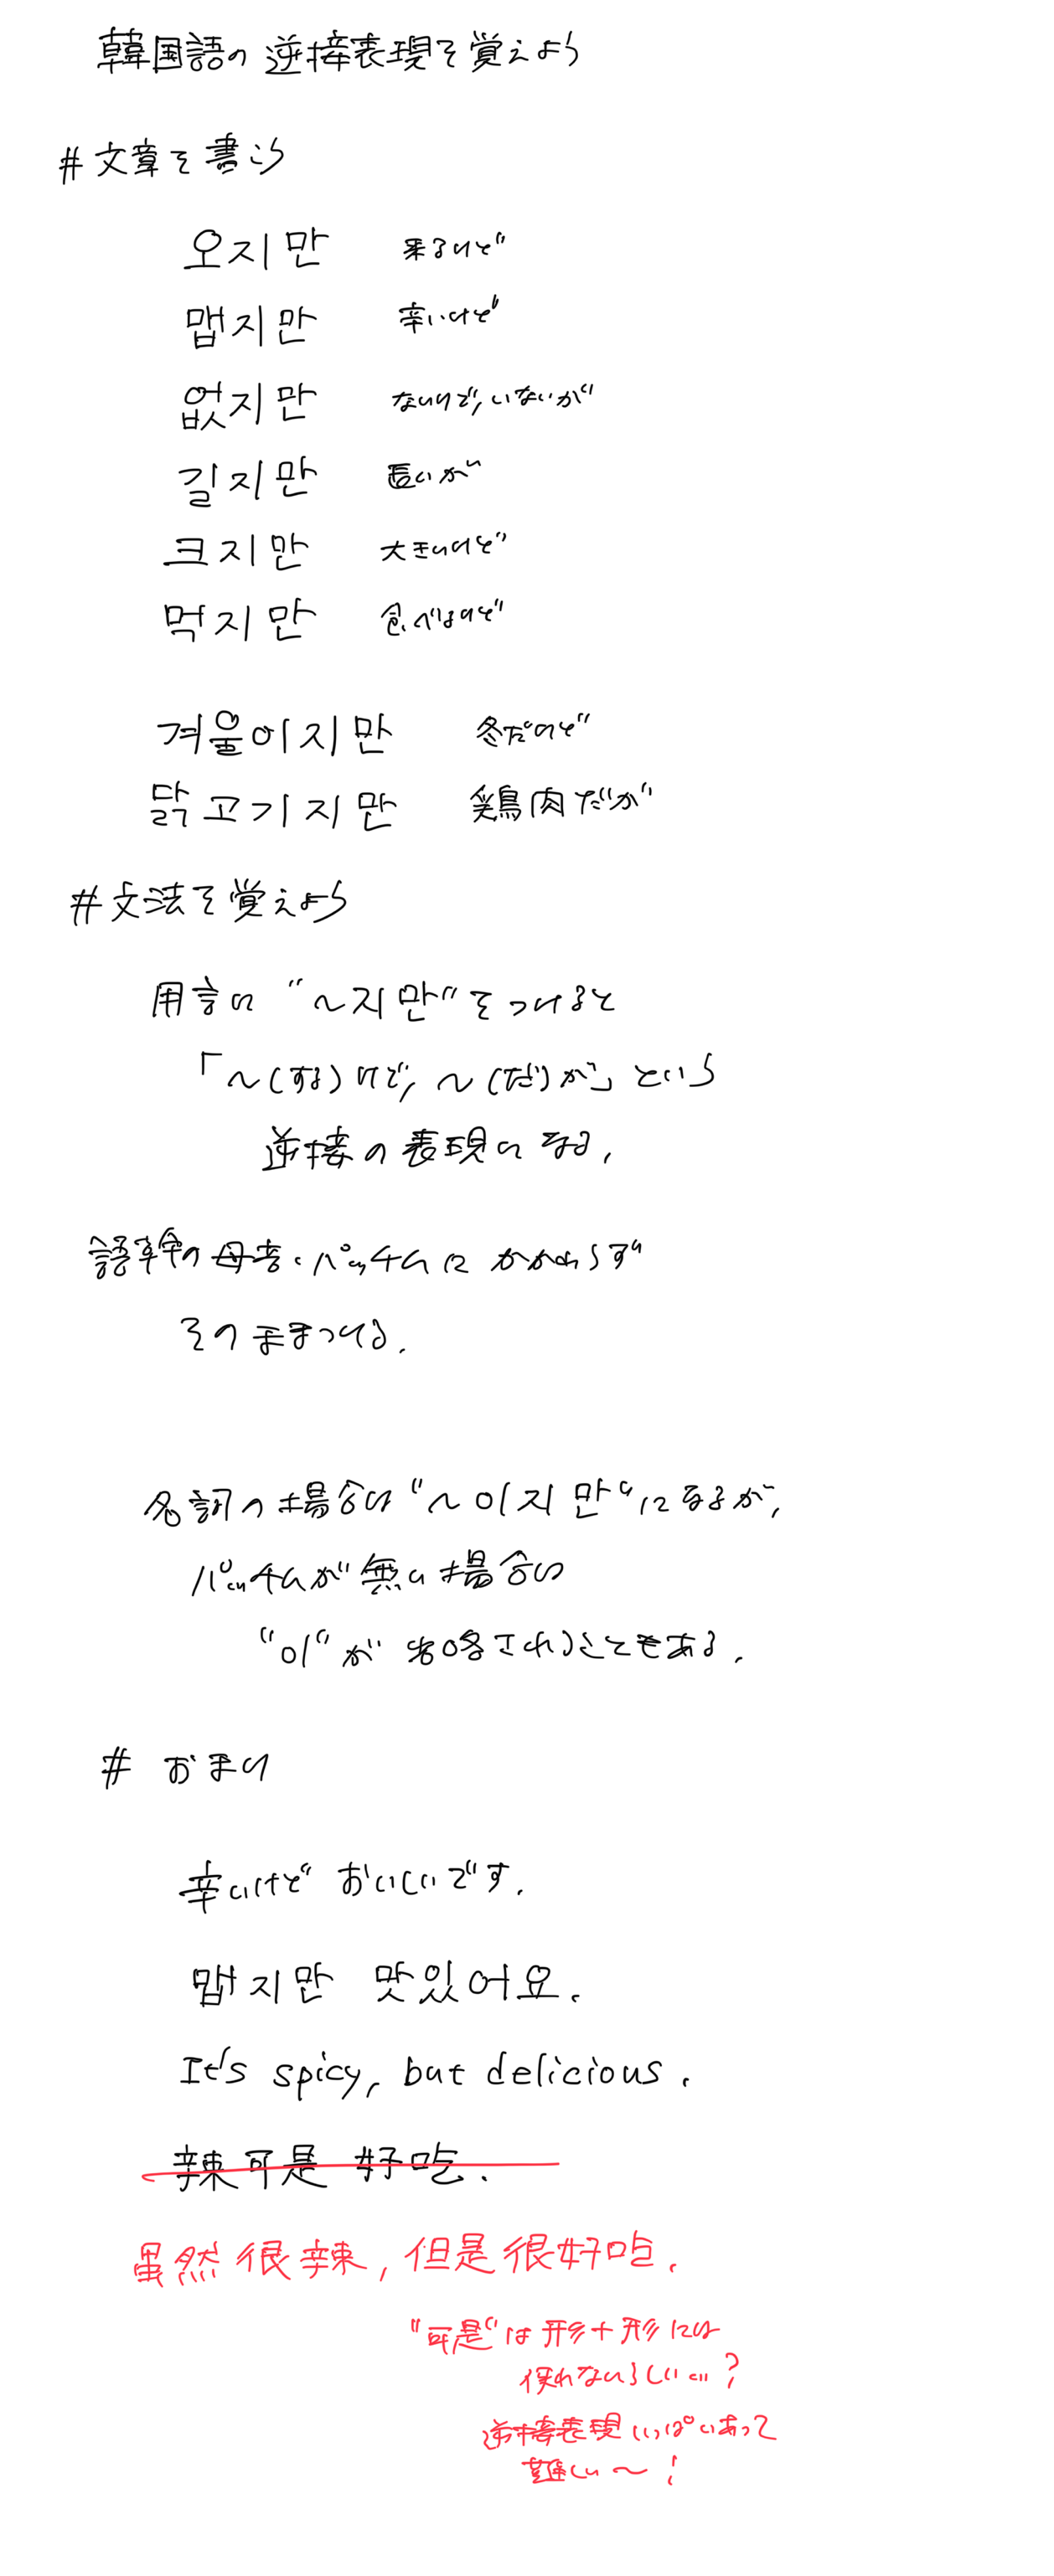 韓国語の逆接表現を覚えよう
#文章を書こう
오지만 来るけど
맵지만 辛いけど
없지만 ないけど, いないが
길지만 長いが
크지만 大きいけど
먹지만 食べるけど
겨울이지만 冬だけど
닭고기지만 鶏肉だが
#文法を覚えよう
用言に "～지만" をつけると
「～(する)けど, ～(だ)が」という
逆接の表現になる.
語幹の母音・パッチムにかかわらず
そのままつける.
名詞の場合は "～이지만" になるが,
パッチムが無い場合は
"이" が省略されることもある.
# おまけ
辛いけど おいしいです.
맵지만 맛있어요.
It's spicy, but delicious.
辣可是 好吃.
虽然很辣, 但是很好吃.
"可是" は 形+形には
使れないらしい…?
逆接表現いっぱいあって
難しい～!